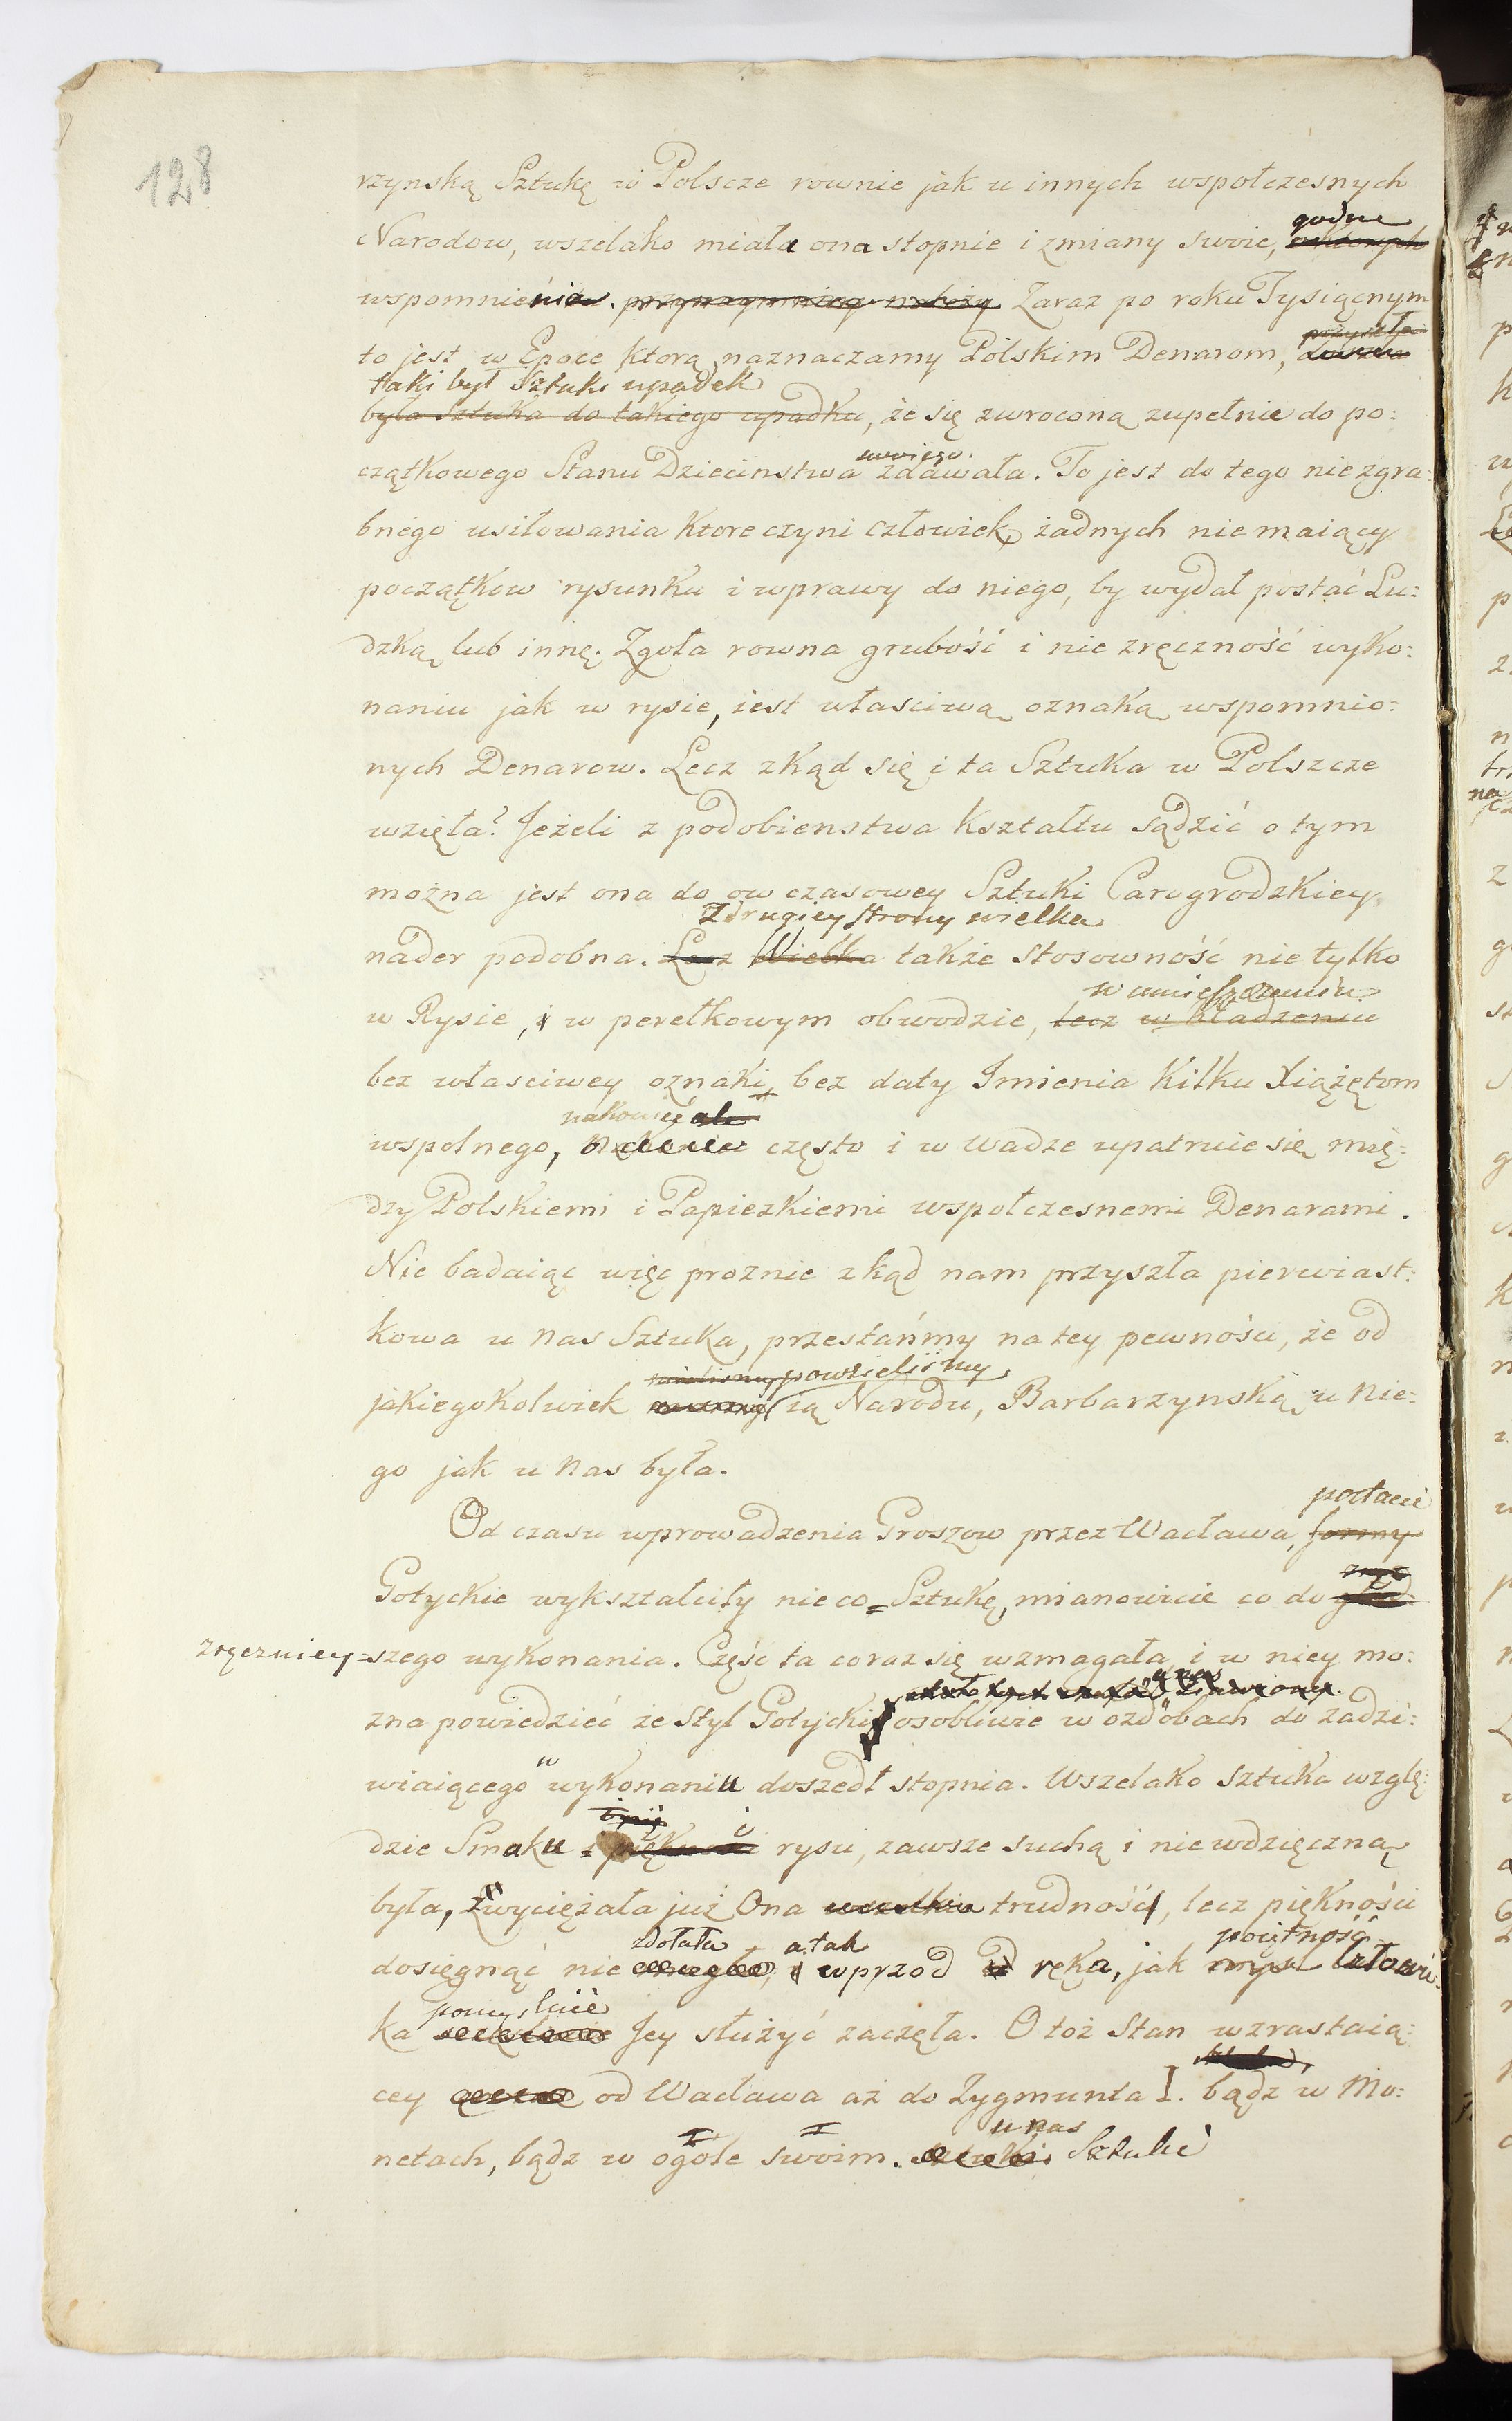 128
rzynską Sztukę w Polscze rownie jak u innych wspołczesnych
godne
Narodow, wszelako miała ona stopnie i zmiany swoie,
wspomnienia. przynaymniey należy Zaraz po roku Tysiącnym
przyszła
to jest w Epoce ktorą naznaczamy Pólskim Denarom,
taki był Sztuki upadek
była Sztuka do takiego upadku, że się zwroconą zupełnie do po:
swoiego.
czątkowego Stanu Dziecinstwa zdawała. To jest do tego niezgra:
bnego usiłowania ktore czyni człowiek, żadnych nie maiący
początkow rysunku i wprawy do niego, by wydał postać Lu:
dzką lub innę. Zgoła rowna grubość i nie zręczność wyko:
naniu jak w rysie, iest właściwą oznaką wspomnio:
nych Denarow. Lecz zkąd się i ta Sztuka w Polszcze
wzięła? Jeżeli z podobienstwa Kształtu sądzić o tym
można jest ona do ow czasowey Sztuki Carogrodzkiey,
Z drugiey strony wielka
nader podobna. Lecz Wielka także stosowność nie tylko
w umieszczeniu
w Rysie, i w perełkowym obwodzie, lecz w kładzeniu
bez właściwey oznaki, bez daty Imienia kilku Xiążętom
nakoniec ale
wspolnego, często i w wadze upatruie się mię:
dzy Polskiemi i Papiezkiemi wspołczesnemi Denarami.
Nie badaiąc więc proznie zkąd nam przyszła pierwiast:
kowa u nas Sztuka, przestańmy na tey pewności, że od
powzieliśmy
jakiegokolwiek ią Narodu, Barbarzynską u nie:
go jak u nas była.
postacie
Od czasu wprowadzenia Groszow przez Wacława, formy
Gotyckie wykształciły nieco Sztukę, mianowicie co do
zręczniey=szego wykonania. Część ta coraz się wzmagała i w niey mo:
u nas
zna powiedzieć ze styl Gotycki osobliwie w ozdobach do zadzi:
w
wiaiącego wykonaniu doszedł stopnia. Wszelako sztuka wzglę:
i
dzie Smaku rysu, zawsze suchą i niewdzięczną
była, zwyciężała już Ona wszelkie trudność, lecz piękności
zdołała a tak poiętność
dosięgnąć nie wprzod ręka, jak mysl człowie:
pomyślnie
ka Jey służyć zaczęła. Otoż Stan wzrastaią:
cey od Wacława aż do Zygmunta I. bądź w Mo:
u nas
netach, bądz w ogóle swoim. Sztuki